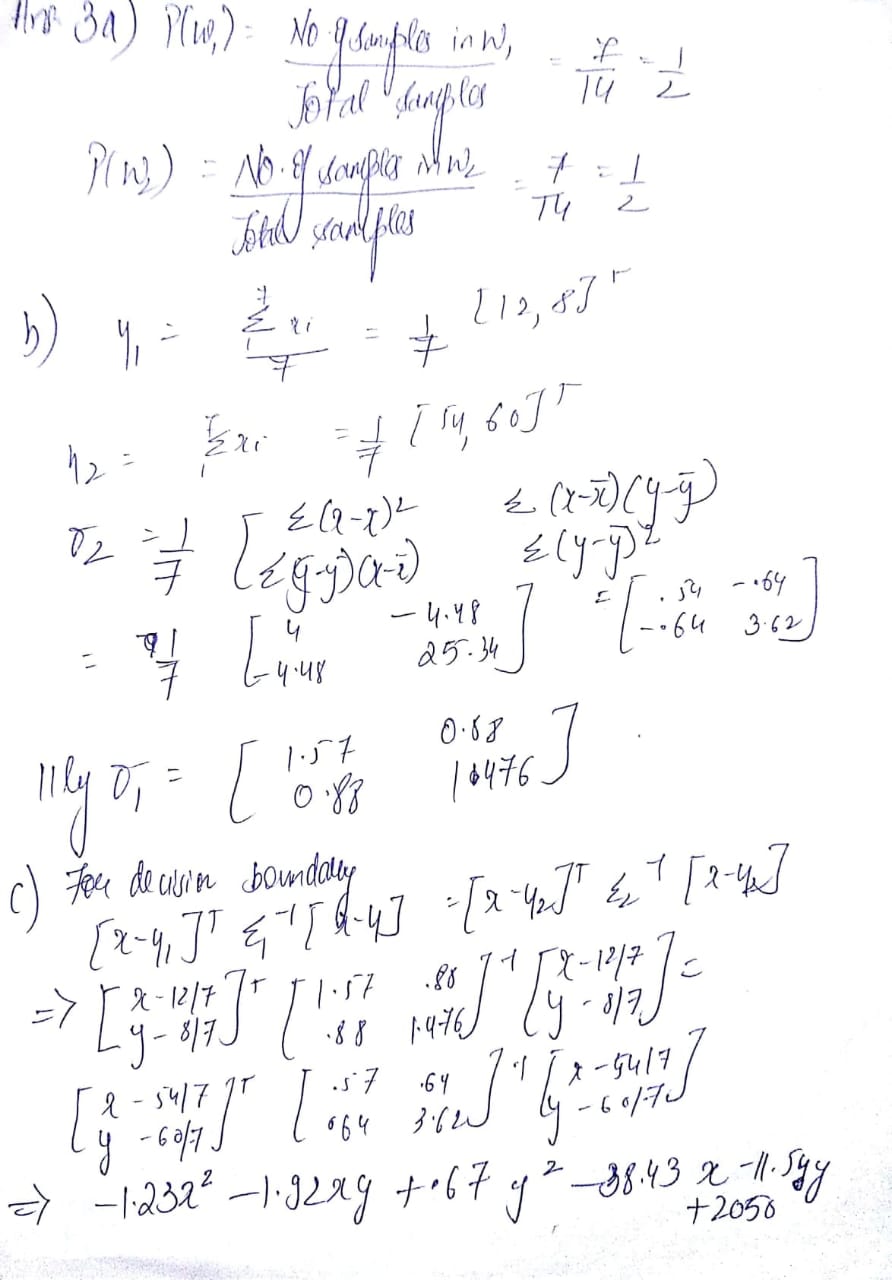 Ans 3a) P(w₁) = No. of samples in w₁ / Total samples = 7/14 = 1/2
P(w₂) = No. of samples in w₂ / Total samples = 7/14 = 1/2
b) y₁ = Σ xi / 7 = 1/7 [12, 8]ᵀ
y₂ = Σ xi = 1/7 [54, 60]ᵀ
σ₂ = 1/7 [ Σ(x-x̄)² Σ(x-x̄)(y-ȳ)
Σ(ȳ-y)(x-x̄) Σ(y-ȳ)²
= 1/7 [ 4 -4.48
-4.48 25.34 ] = [ .54 -.64
-.64 3.62 ]
11ly σ₁ = [ 1.57 0.88
0.88 1.476 ]
c) For decision boundary
[x-y₁]ᵀ Σ₁⁻¹ [x-y] = [x-y₂]ᵀ Σ₂⁻¹ [x-y₂]
=> [ x-12/7 ]ᵀ [ 1.57 .88 ]⁻¹ [ x-12/7 ] =
[ y-8/7 ] [ .88 1.476 ] [ y-8/7 ]
[ x-54/7 ]ᵀ [ .57 .64 ]⁻¹ [ x-54/7 ]
[ y-60/7 ] [ 064 3.62 ] [ y-60/7 ]
=> -1.23x² -1.92xy +.67y² -38.43x -11.54y
+2050